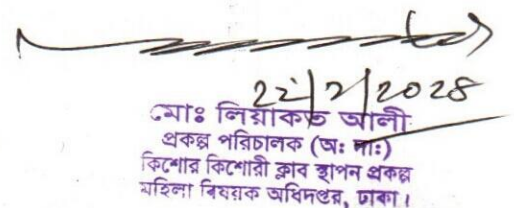 ২২/২/২০২৪
মোঃ লিয়াকত আলী
প্রকল্প পরিচালক (অঃ দাঃ)
কিশোর কিশোরী ক্লাব স্থাপন প্রকল্প
মহিলা বিষয়ক অধিদপ্তর, ঢাকা।